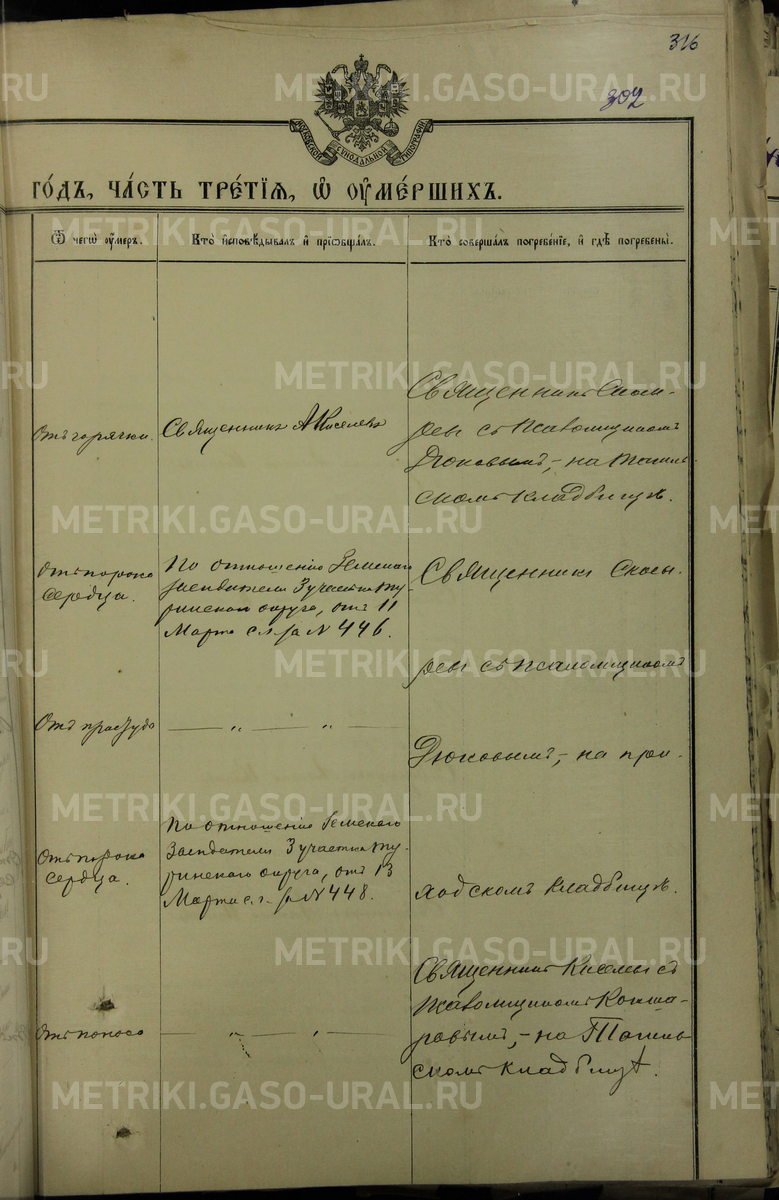 316
302
МОСКОВСКОЙ СѴНОДАЛЬНОЙ ТИПОГРАФІИ
ГО́ДЪ, ЧА́СТЬ ТРЕ́ТІѦ, Ѽ ОУ҆МЕ́РШИХЪ.
Ѿ чегѡ̀ оу҆́меръ.
Кто̀ и҆сповѣ́дывалъ и҆ прїѡбща́лъ.
Кто̀ соверша́лъ погребе́нїе, и҆ гдѣ̀ погребены̀.
Отъ горячки.
Священникъ А Киселевъ
Священникъ
съ псаломщикомъ
Дюковымъ, – на
скомъ кладбищѣ.
Отъ порока
сердца.
По отношенію Земскаго
Засѣдателя 3 участка Ту-
ринскаго округа, отъ 11
Марта с.г. за № 446.
Священникъ Скосы-
ревъ съ псаломщикомъ
Дюковымъ, – на при-
ходскомъ кладбищѣ.
Отъ простуды
— „ — „ —
Отъ порока
сердца.
По отношенію Земскаго
Засѣдателя 3 участка Ту-
ринскаго округа, отъ 13
Марта с.г. за № 448.
Отъ поноса
— „ — „ —
Священникъ Киселевъ съ
псаломщикомъ
– на
скомъ кладбищѣ.
METRIKI.GASO-URAL.RU